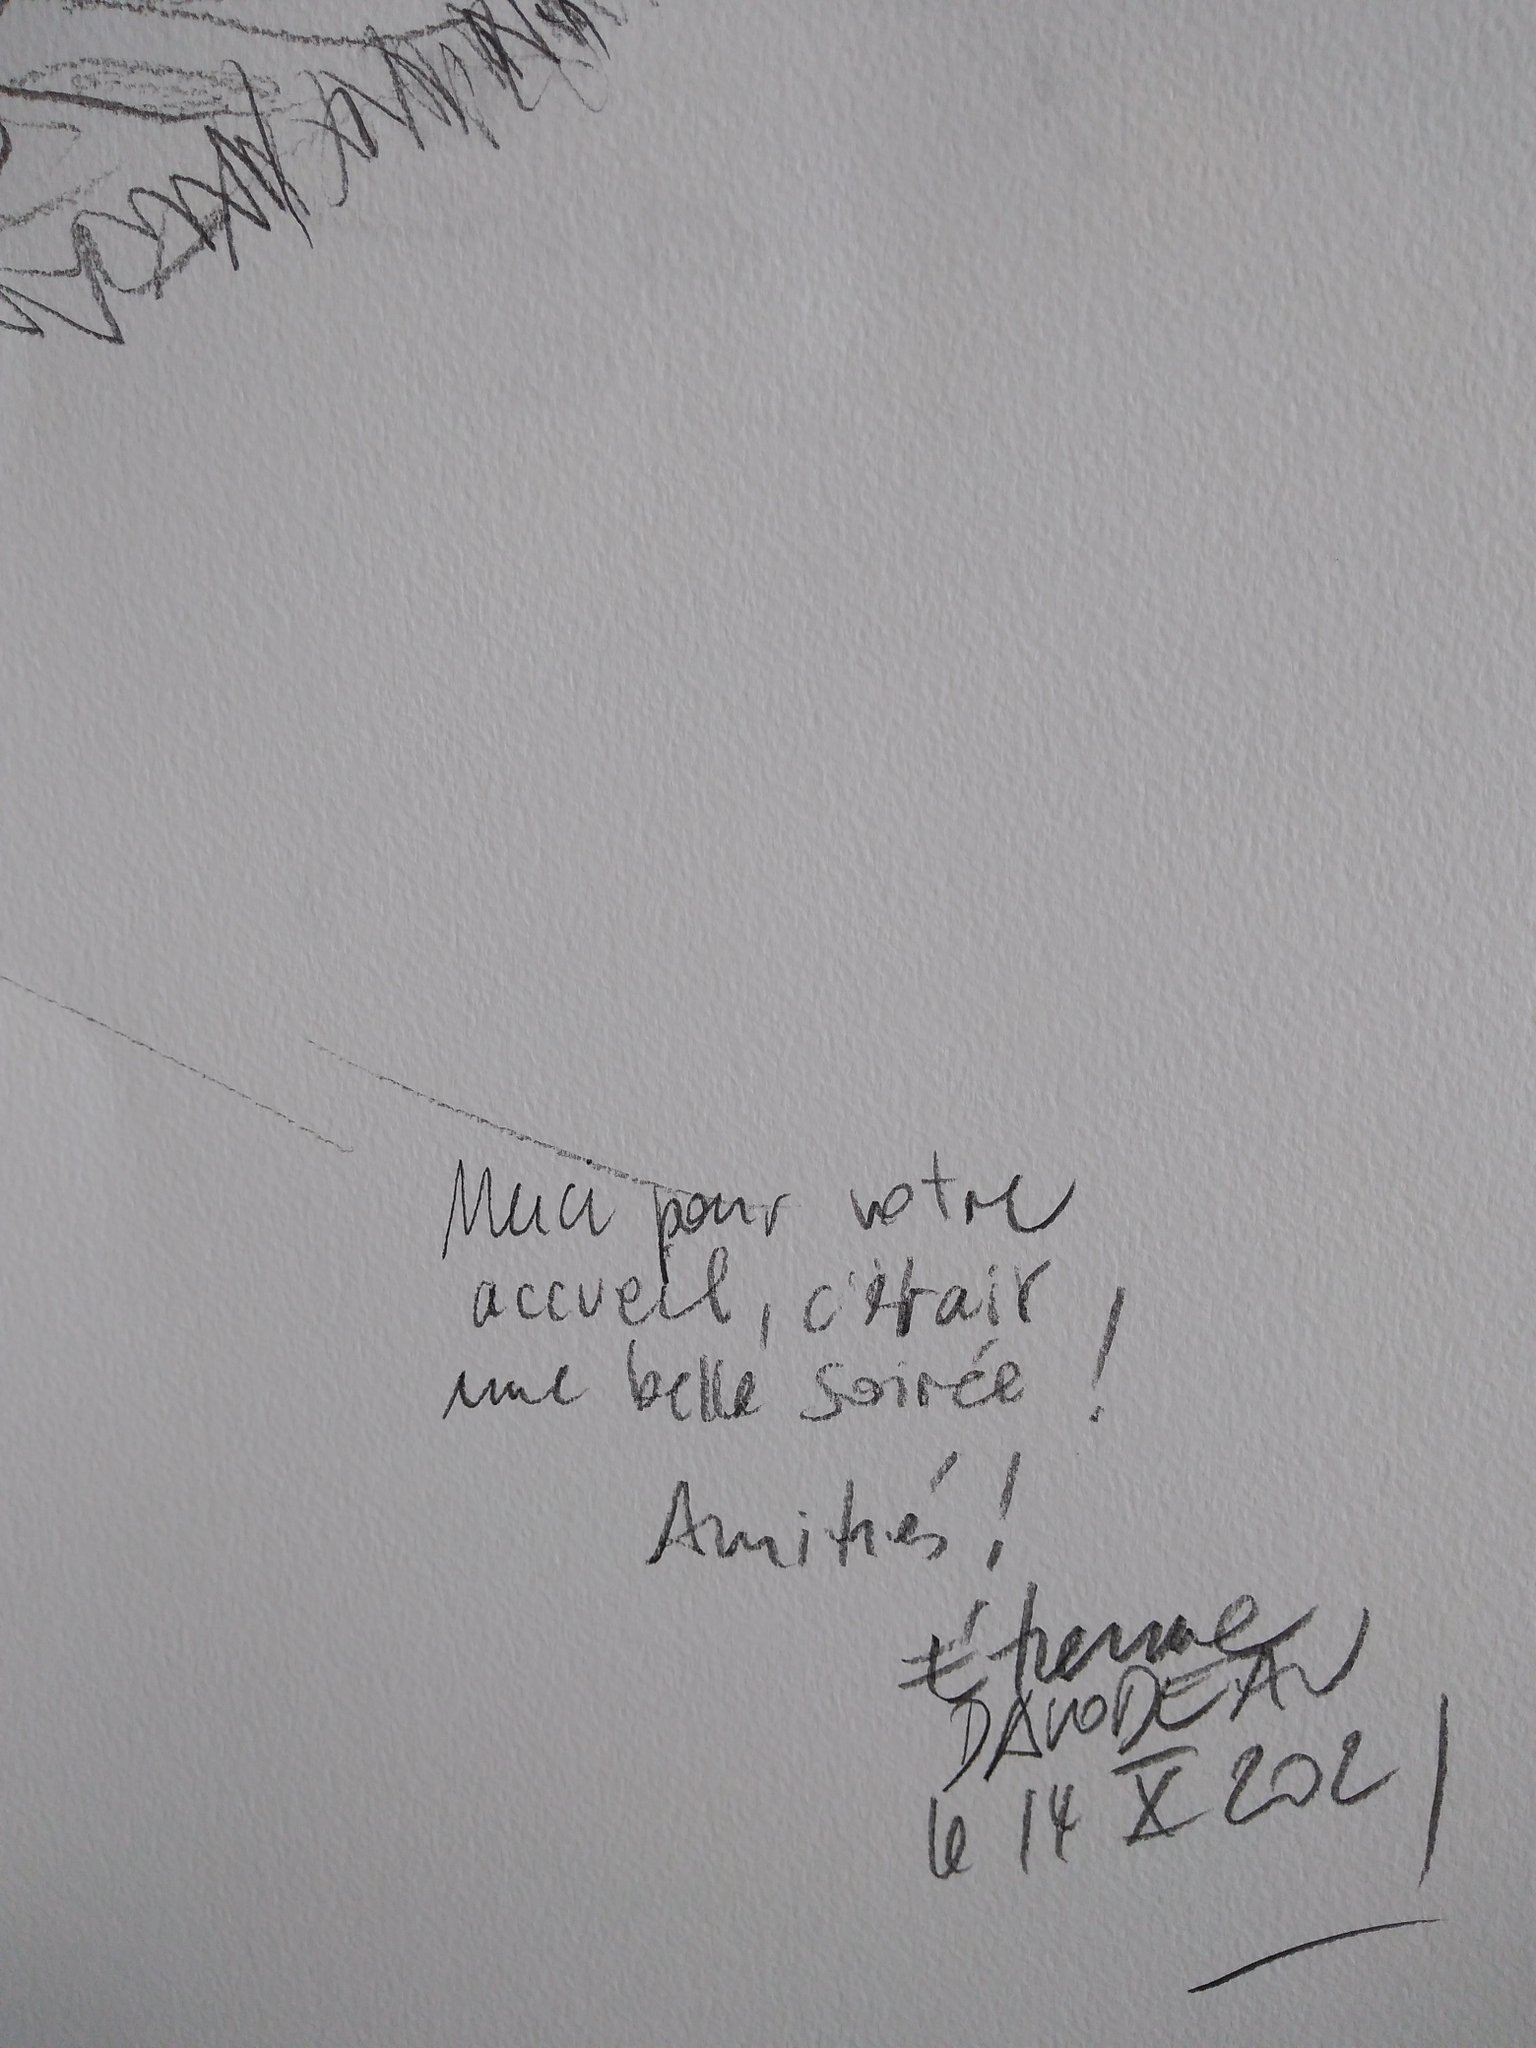 Merci pour votre
accueil, c'était
une belle soirée !
Amitiés !
Étienne
DAVODEAU
le 14 X 2021